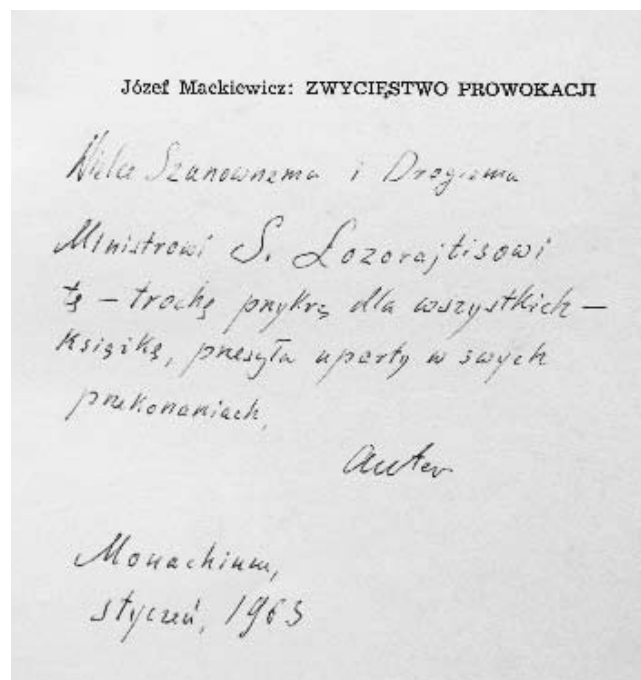 Józef Mackiewicz: ZWYCIĘSTWO PROWOKACJI
Wielce Szanownemu i Drogiemu
Ministrowi S. Lozorajtisowi
tę — trochę przykrą dla wszystkich —
książkę, przesyła uparty w swych
przekonaniach,
autor
Monachium,
styczeń, 1963